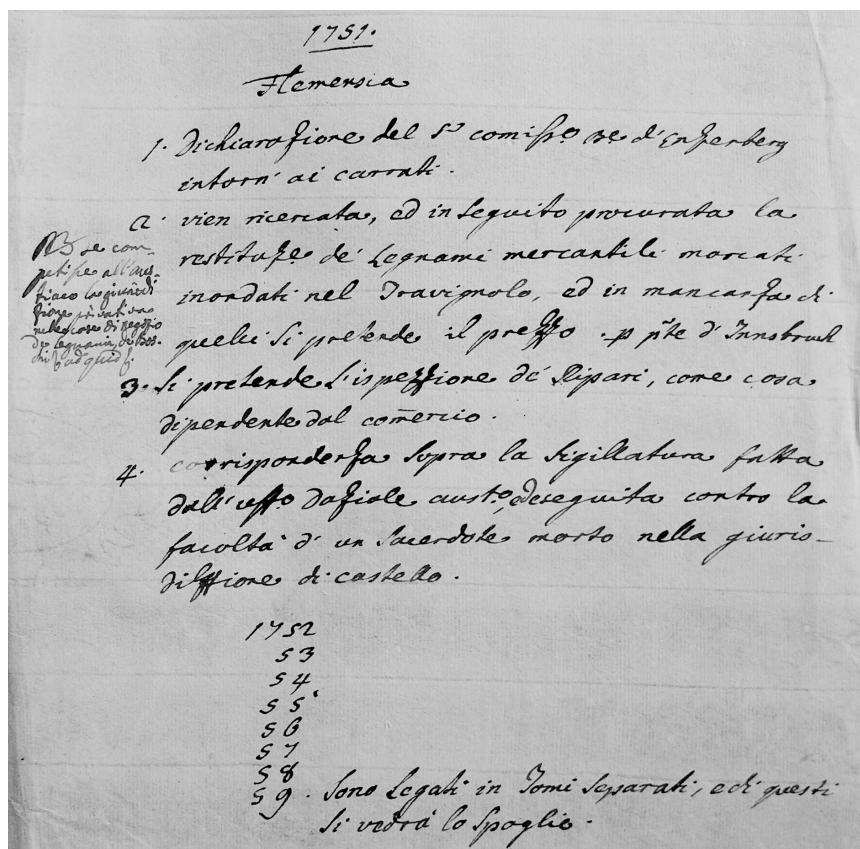 1751.
Flemersia
1. Dichiarazione del Sr comisso. Bne d'Enzenberg
intorn' ai carrati.
2. vien ricercata, ed in seguito procurata la
restituze. de' Legnami mercantili marcati
inondati nel Travignolo, ed in mancanza di
quelli si pretende il prezzo p pte d'Innsbruck
NB se com-
petisse all'Aus-
triaco la giurisdi
zione privativa
nelle cose di negozio
di Legnami, de' Bos-
chi ad quid
3. Si pretende l'ispezzione de' Ripari, come cosa
dipendente dal com̃ercio.
4. corrispondenza sopra la sigillatura fatta
dall'uffo. Daziale austo., ed eseguita contro la
facoltà d'un Sacerdote morto nella giuris-
dizzione di castello.
1752
53
54
55
56
57
58
59. Sono Legati in Tomi Separati, e di questi
si vedrà lo Spoglio.